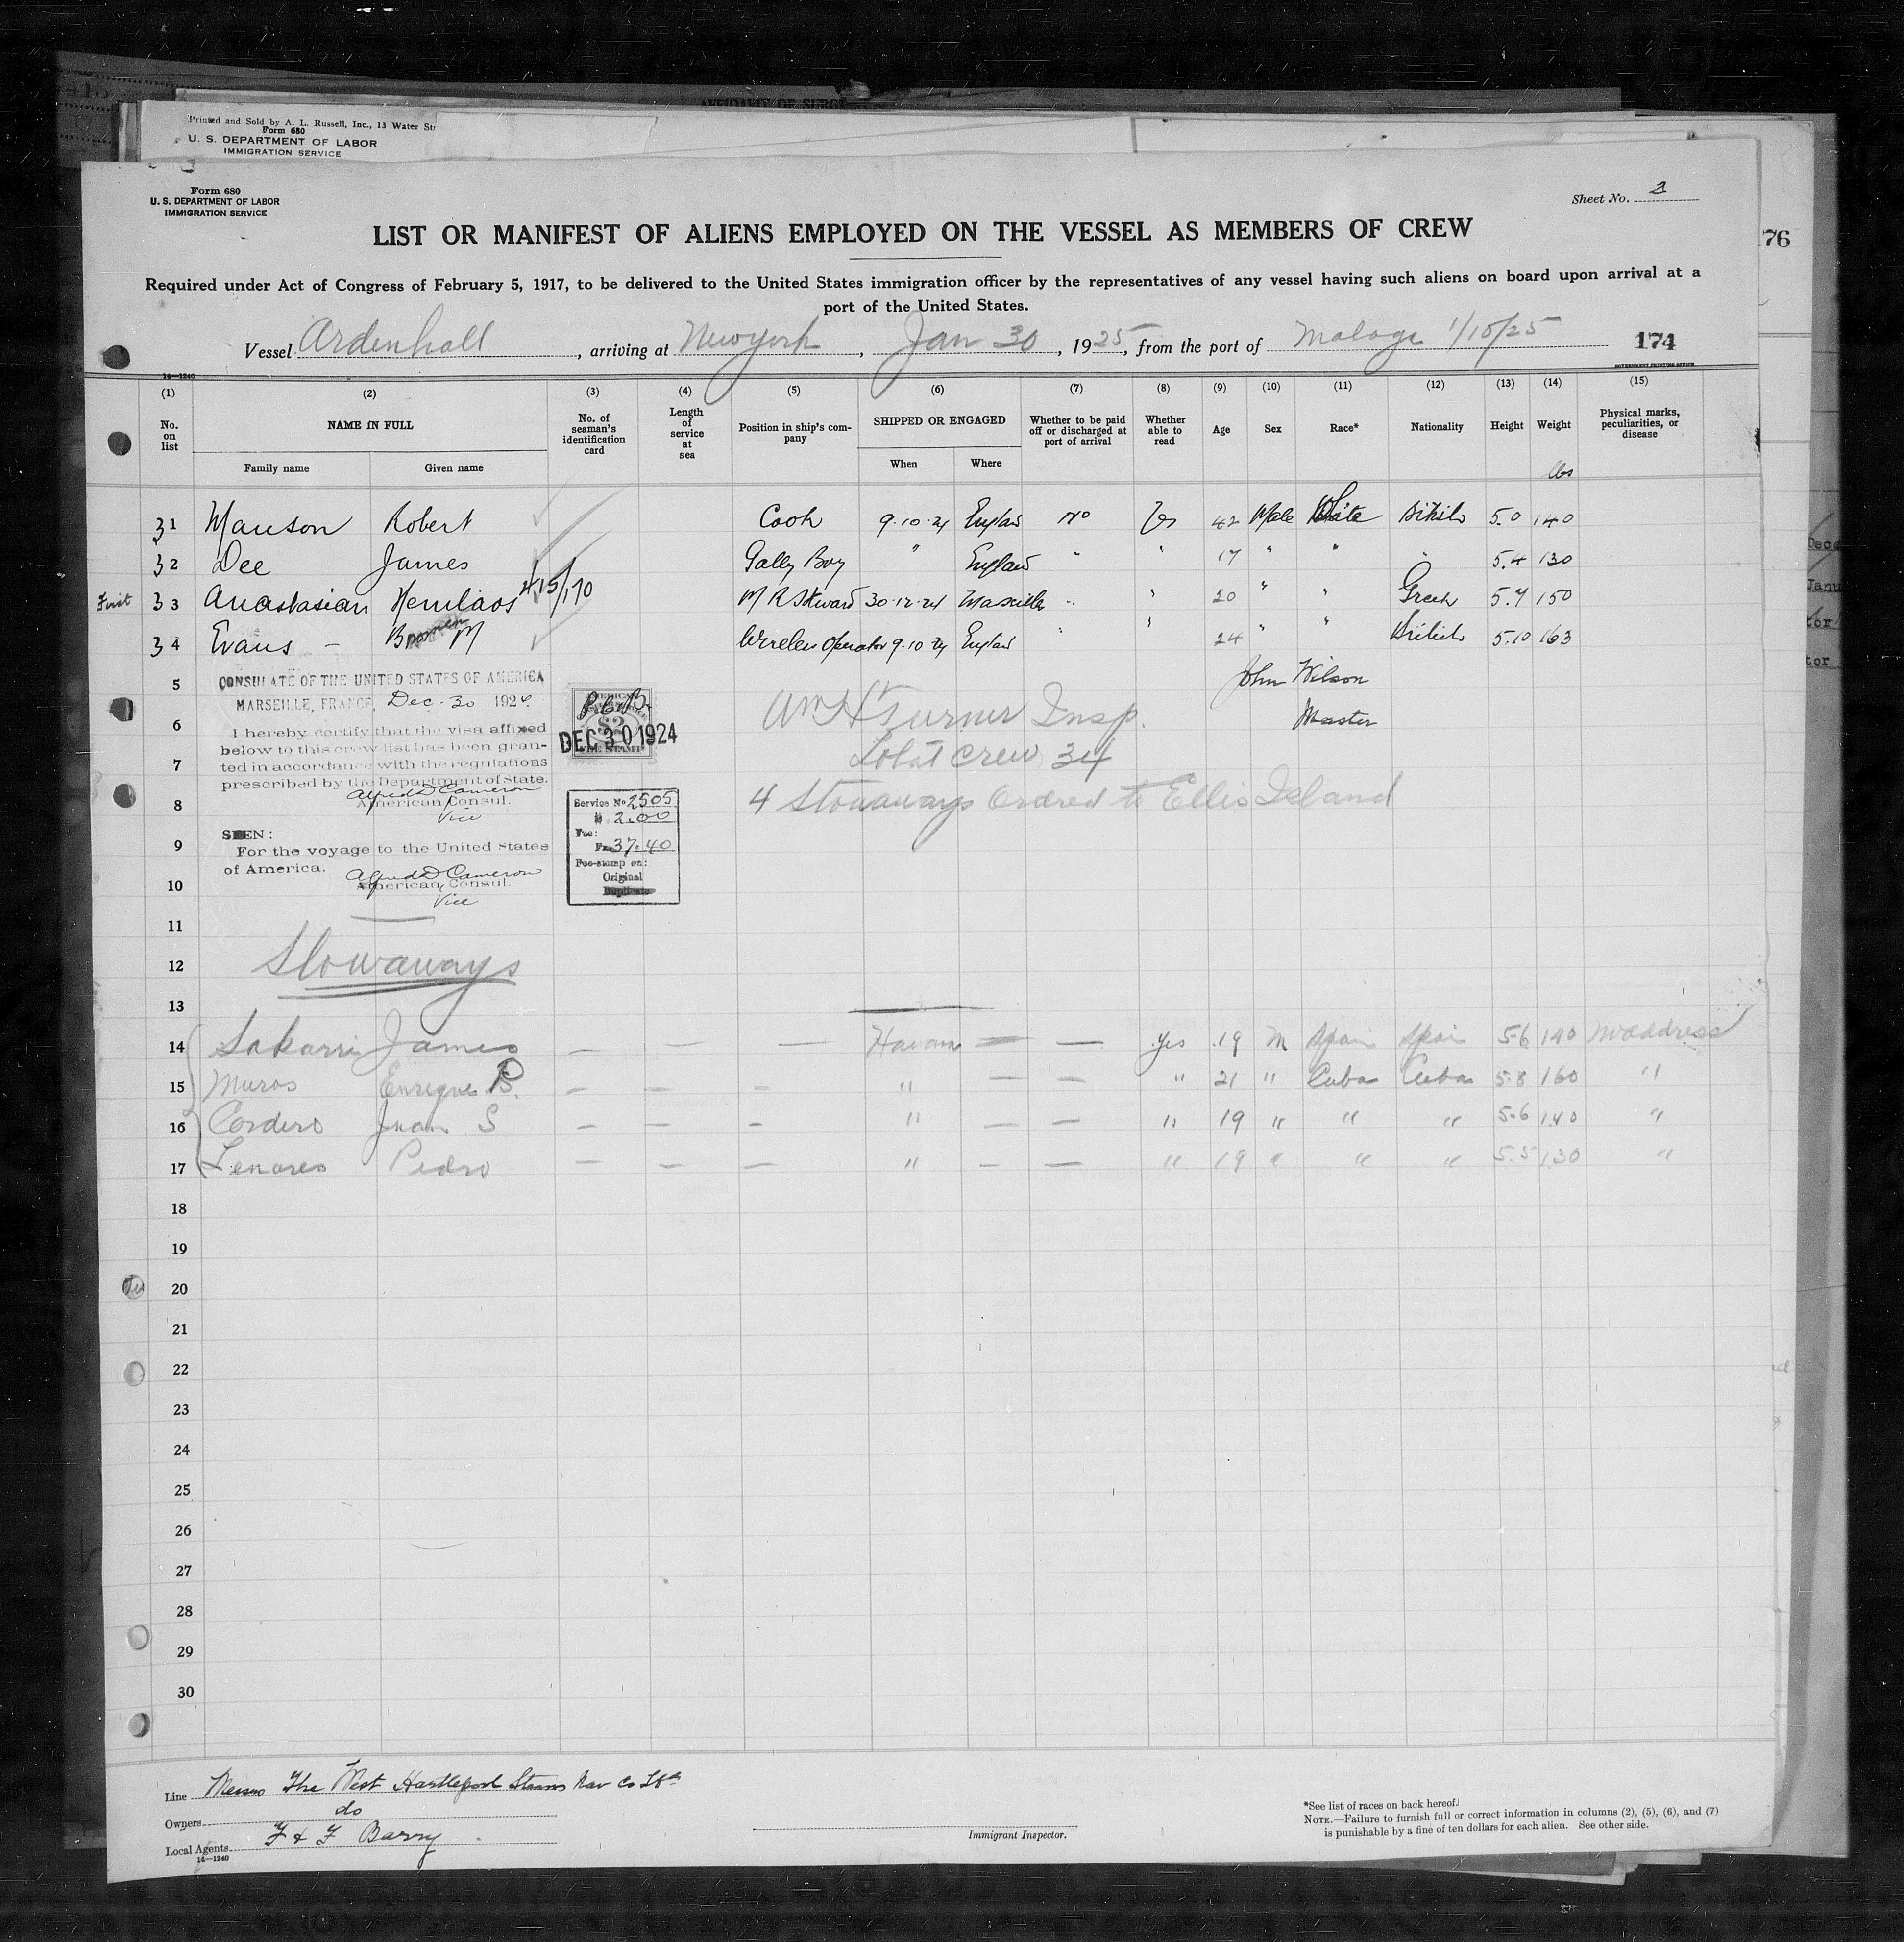 413
AFFIDAVIT OF SURGE
Printed and Sold by A. L. Russell, Inc., 13 Water Str
Form 680
U. S. DEPARTMENT OF LABOR
IMMIGRATION SERVICE
76
Form 680
U. S. DEPARTMENT OF LABOR
IMMIGRATION SERVICE
Sheet No. 2
LIST OR MANIFEST OF ALIENS EMPLOYED ON THE VESSEL AS MEMBERS OF CREW
Required under Act of Congress of February 5, 1917, to be delivered to the United States immigration officer by the representatives of any vessel having such aliens on board upon arrival at a
port of the United States.
Vessel Ardenhall, arriving at New York, Jan 30, 1925, from the port of Malaga 1/10/25 174
14—1240 GOVERNMENT PRINTING OFFICE
(1) (2) (3) (4) (5) (6) (7) (8) (9) (10) (11) (12) (13) (14) (15)
No. on list NAME IN FULL No. of seaman's identification card Length of service at sea Position in ship's company SHIPPED OR ENGAGED Whether to be paid off or discharged at port of arrival Whether able to read Age Sex Race* Nationality Height Weight Physical marks, peculiarities, or disease
Family name Given name When Where lbs
31 Manson Robert Cook 9.10.24 England No Yes 42 Male White British 5.0 140
32 Dee James Gally Boy " England " " 17 " " " 5.4 130
First 33 Anastasian 4/15/170 M R Steward 30.12.24 Marseilles " " 20 " " Greek 5.7 150
34 Evans – M Wireless Operator 9.10.24 England " " 24 " " British 5.10 163
5 CONSULATE OF THE UNITED STATES OF AMERICA
John Wilson
MARSEILLE, FRANCE, Dec. 30 1924
Master
6 I hereby certify that the visa affixed
below to this crew list has been gran-
7 ted in accordance with the regulations
prescribed by the Department of State.
Alfred D Cameron
8 American Consul.
Vice
P.C.B.
$2
DEC 30 1924
FEE STAMP
Wm H Turner Insp.
Total crew 34
4 Stowaways Ordred to Ellis Island
Service No 2505
$ 2.00
Fee:
Frs 37.40
Fee-stamp on:
Original
Duplicate
9 SEEN:
For the voyage to the United States
of America.
Alfred D Cameron
10 American Consul.
Vice
11
12 Stowaways
13
14 Sakarri James — — — Havana — — Yes 19 M Spain Spain 5-6 140 No address
15 Muros Enrique B. — — — " — — " 21 " Cuba Cuba 5-8 160 "
16 Cordero Juan S — — — " — — " 19 " " " 5-6 140 "
17 Lenares Pedro — — — " — — " 19 " " " 5-5 130 "
18
19
20
21
22
23
24
25
26
27
28
29
30
Line Messrs The West Hartlepool Steam Nav Co Ltd
Owners do
Local Agents F & F Barry
14—1240
Immigrant Inspector.
*See list of races on back hereof.
NOTE.—Failure to furnish full or correct information in columns (2), (5), (6), and (7)
is punishable by a fine of ten dollars for each alien. See other side.